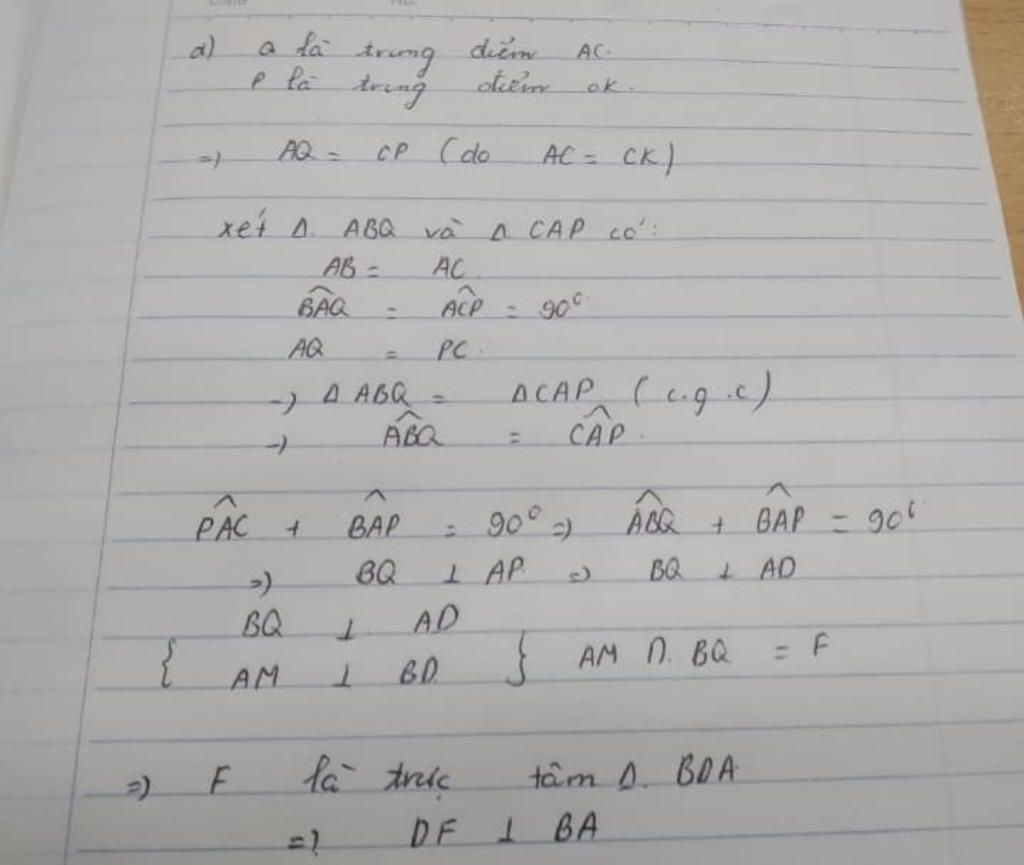 d) Q là trung điểm AC.
P là trung điểm CK.
=) AQ = CP (do AC = CK)
xét Δ. ABQ và Δ CAP có:
AB = AC
B̂AQ = ÂCP = 90°
AQ = PC.
-) Δ ABQ = ΔCAP (c.g.c)
-) ÂBQ = ĈAP.
P̂AC + B̂AP = 90° =) ÂBQ + B̂AP = 90°
=) BQ ⊥ AP. =) BQ ⊥ AD
BQ ⊥ AD
{ AM ⊥ BD. } AM ∩. BQ = F
=) F là trực tâm Δ. BDA
=) DF ⊥ BA